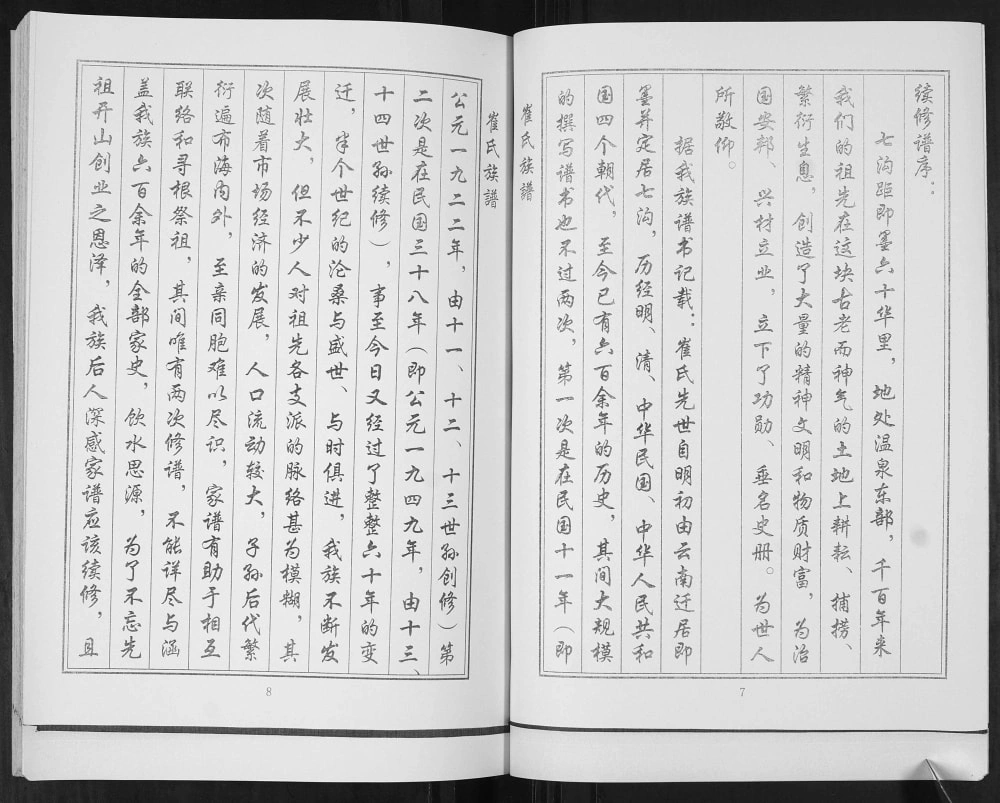 续修谱序：
七沟距即墨六十华里，地处温泉东部，千百年来
我们的祖先在这块古老而神气的土地上耕耘、捕捞、
繁衍生息，创造了大量的精神文明和物质财富，为治
国安邦、兴材立业，立下了功勋、垂名史册。为世人
所敬仰。
据我族谱书记载：崔氏先世自明初由云南迁居即
墨并定居七沟，历经明、清、中华民国、中华人民共和
国四个朝代，至今已有六百余年的历史，其间大规模
的撰写谱书也不过两次，第一次是在民国十一年（即
崔氏族譜
7
崔氏族譜
公元一九二二年，由十一、十二、十三世孙创修）第
二次是在民国三十八年（即公元一九四九年，由十三、
十四世孙续修），事至今日又经过了整整六十年的变
迁，半个世纪的沧桑与盛世、与时俱进，我族不断发
展壮大，但不少人对祖先各支派的脉络甚为模糊，其
次随着市场经济的发展，人口流动较大，子孙后代繁
衍遍布海内外，至亲同胞难以尽识，家谱有助于相互
联络和寻根祭祖，其间唯有两次修谱，不能详尽与涵
盖我族六百余年的全部家史，饮水思源，为了不忘先
祖开山创业之恩泽，我族后人深感家谱应该续修，且
8